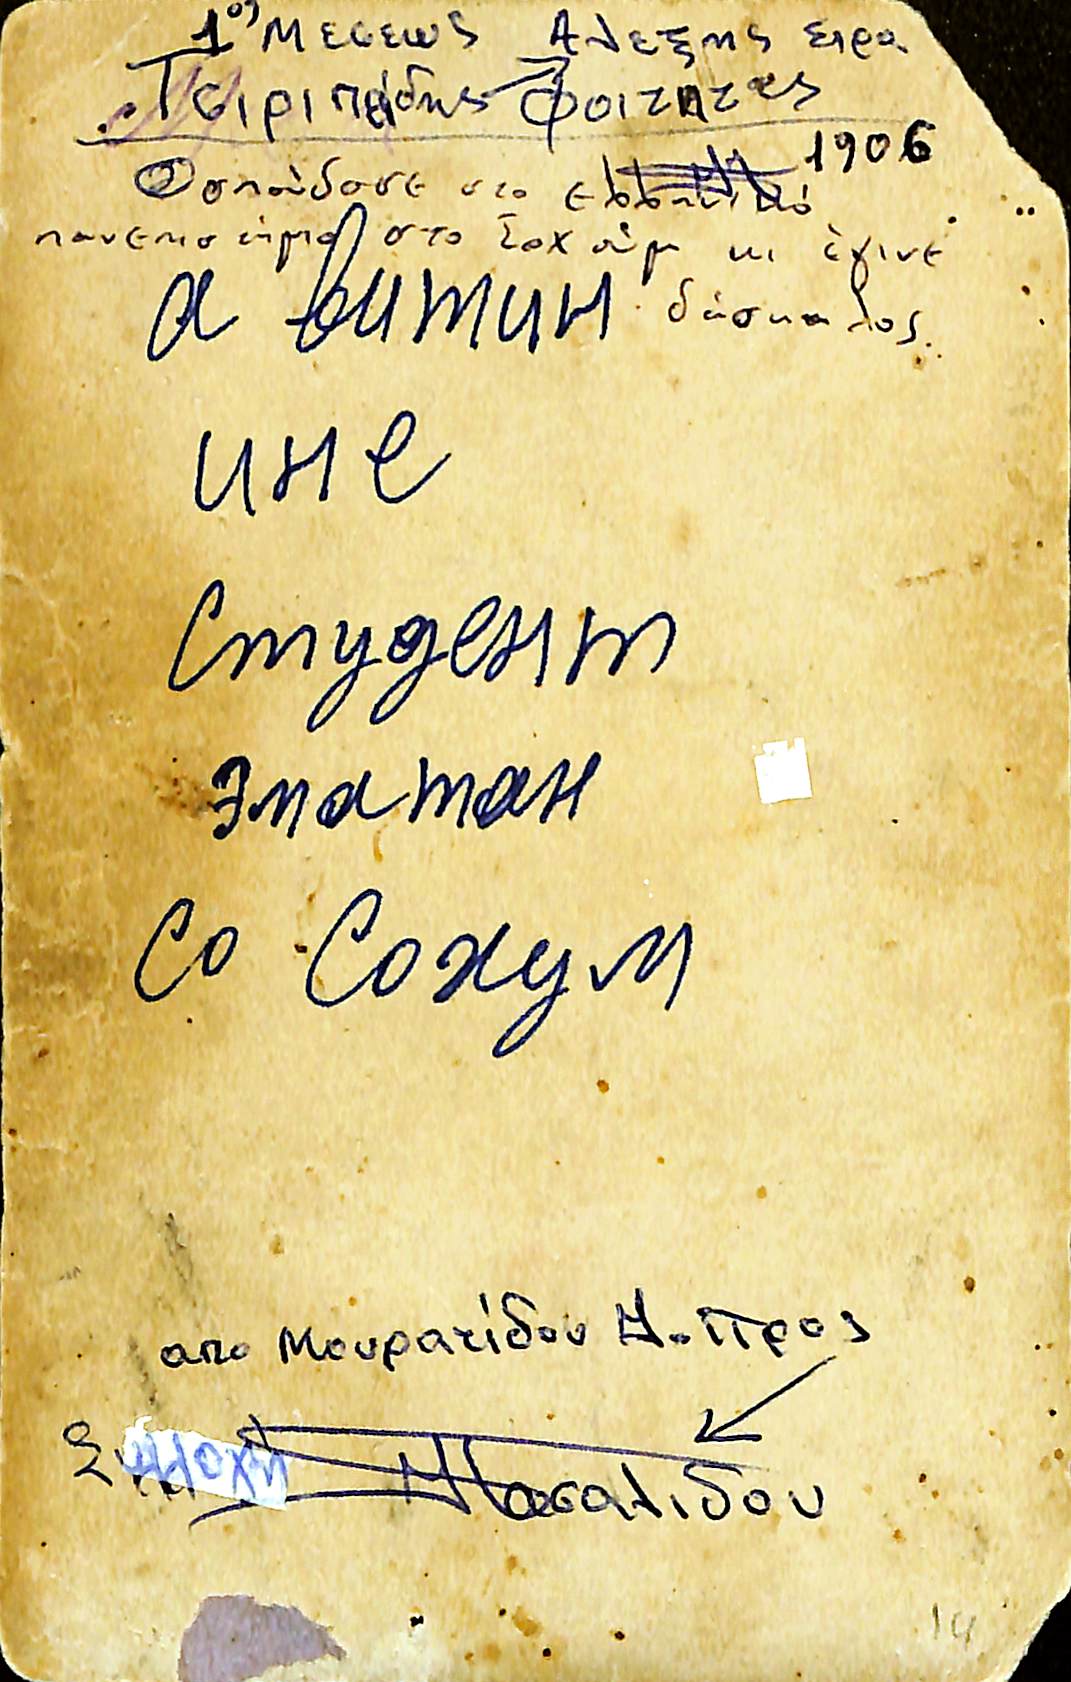 1ος Μεσεως Αλεξης σιρα
Τσιριπίδης φοιτητες
1906
Σπούδασε στο ελληνικό
πανεπιστήμιο στο Σοχούμ κι έγινε
δάσκαλος.
а витин
ине
студент
эпатан
со Сохум
απο Μουρατίδου Δ. προς
Συλλογή Πασαλιδου
14